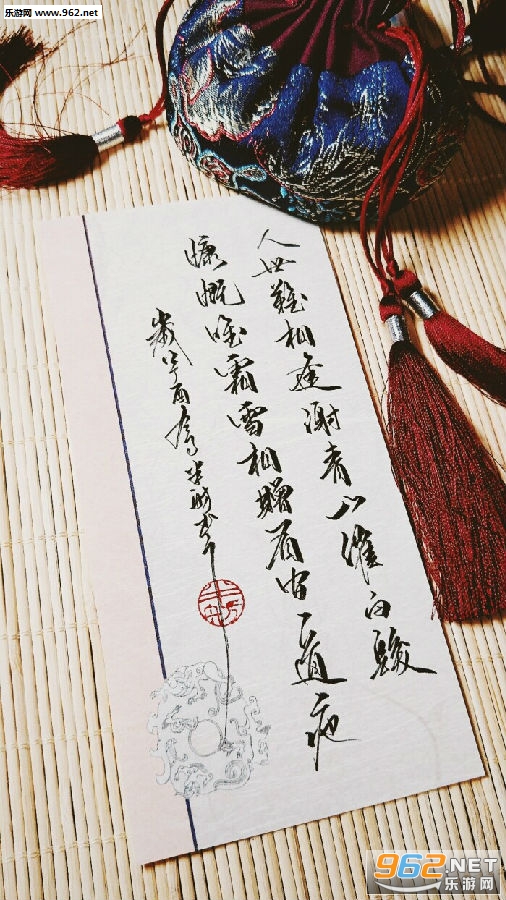 乐游网
www.962.net
人世難相逢谢青山催白髮
慷慨唯霜雪相贈眉間一道疤
歲丁酉
962.NET
乐游网